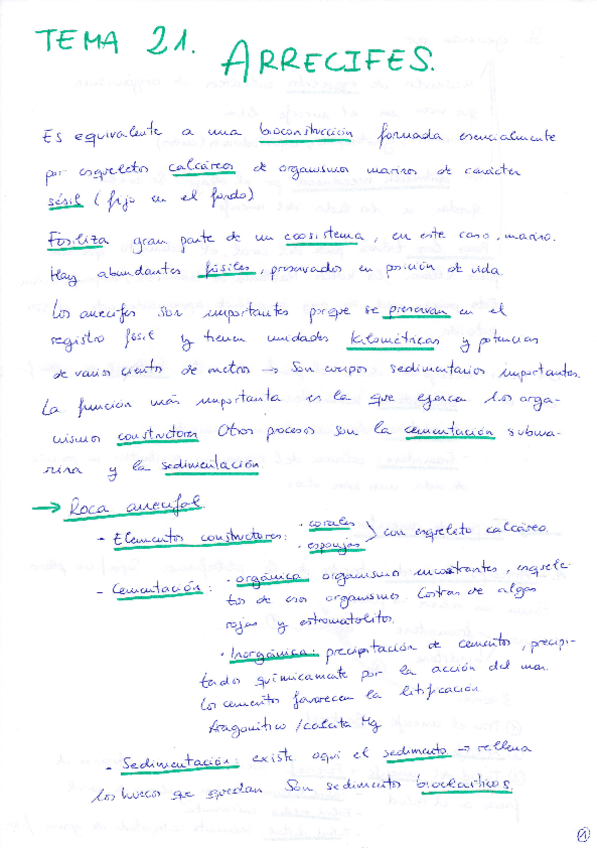 TEMA 21. ARRECIFES.
Es equivalente a una bioconstrucción formada esencialmente
por esqueletos calcáreos de organismos marinos de carácter
sésil (fijo en el fondo)
Fosiliza gran parte de un ecosistema, en este caso, marino.
Hay abundantes fósiles, preservados en posición de vida.
Los arrecifes son importantes porque se preservan en el
registro fósil y tienen unidades kilométricas y potencias
de varios cientos de metros → Son cuerpos sedimentarios importantes.
La función más importante es la que ejercen los orga-
nismos constructores Otros procesos son la cementación subma-
rina y la sedimentación
→ Roca arrecifal.
- Elementos constructores: · corales
· esponjas > con esqueleto calcáreo.
- Cementación: · orgánica: organismos incrustantes, esquele-
tos de esos organismos. Costras de algas
rojas y estromatolitos.
· Inorgánica: precipitación de cementos, precipi-
tados químicamente por la acción del mar.
Los cementos favorecen la litificación
Aragonítico / calcita Mg
- Sedimentación: existe aquí el sedimento → rellena
los huecos que quedan Son sedimentos bioclásticos.
1